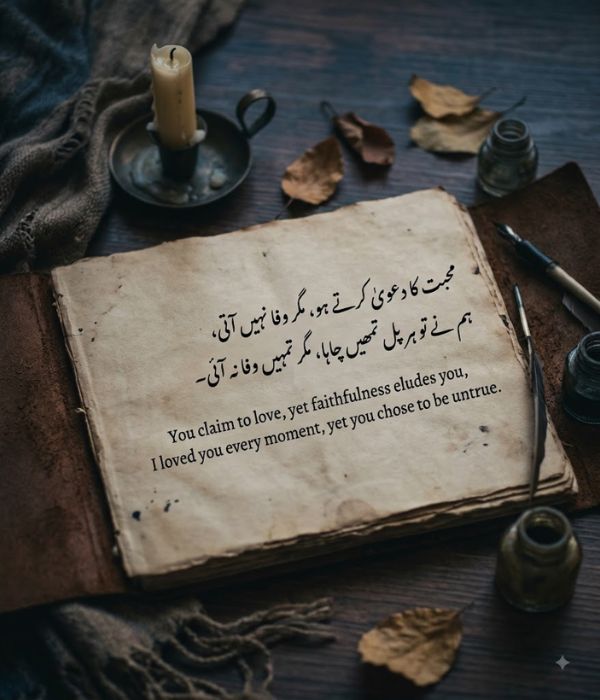 محبت کا دعویٰ کرتے ہو، مگر وفا نہیں آتی،
ہم نے تو ہر پل تمھیں چاہا، مگر تمہیں وفا نہ آئی۔
You claim to love, yet faithfulness eludes you,
I loved you every moment, yet you chose to be untrue.